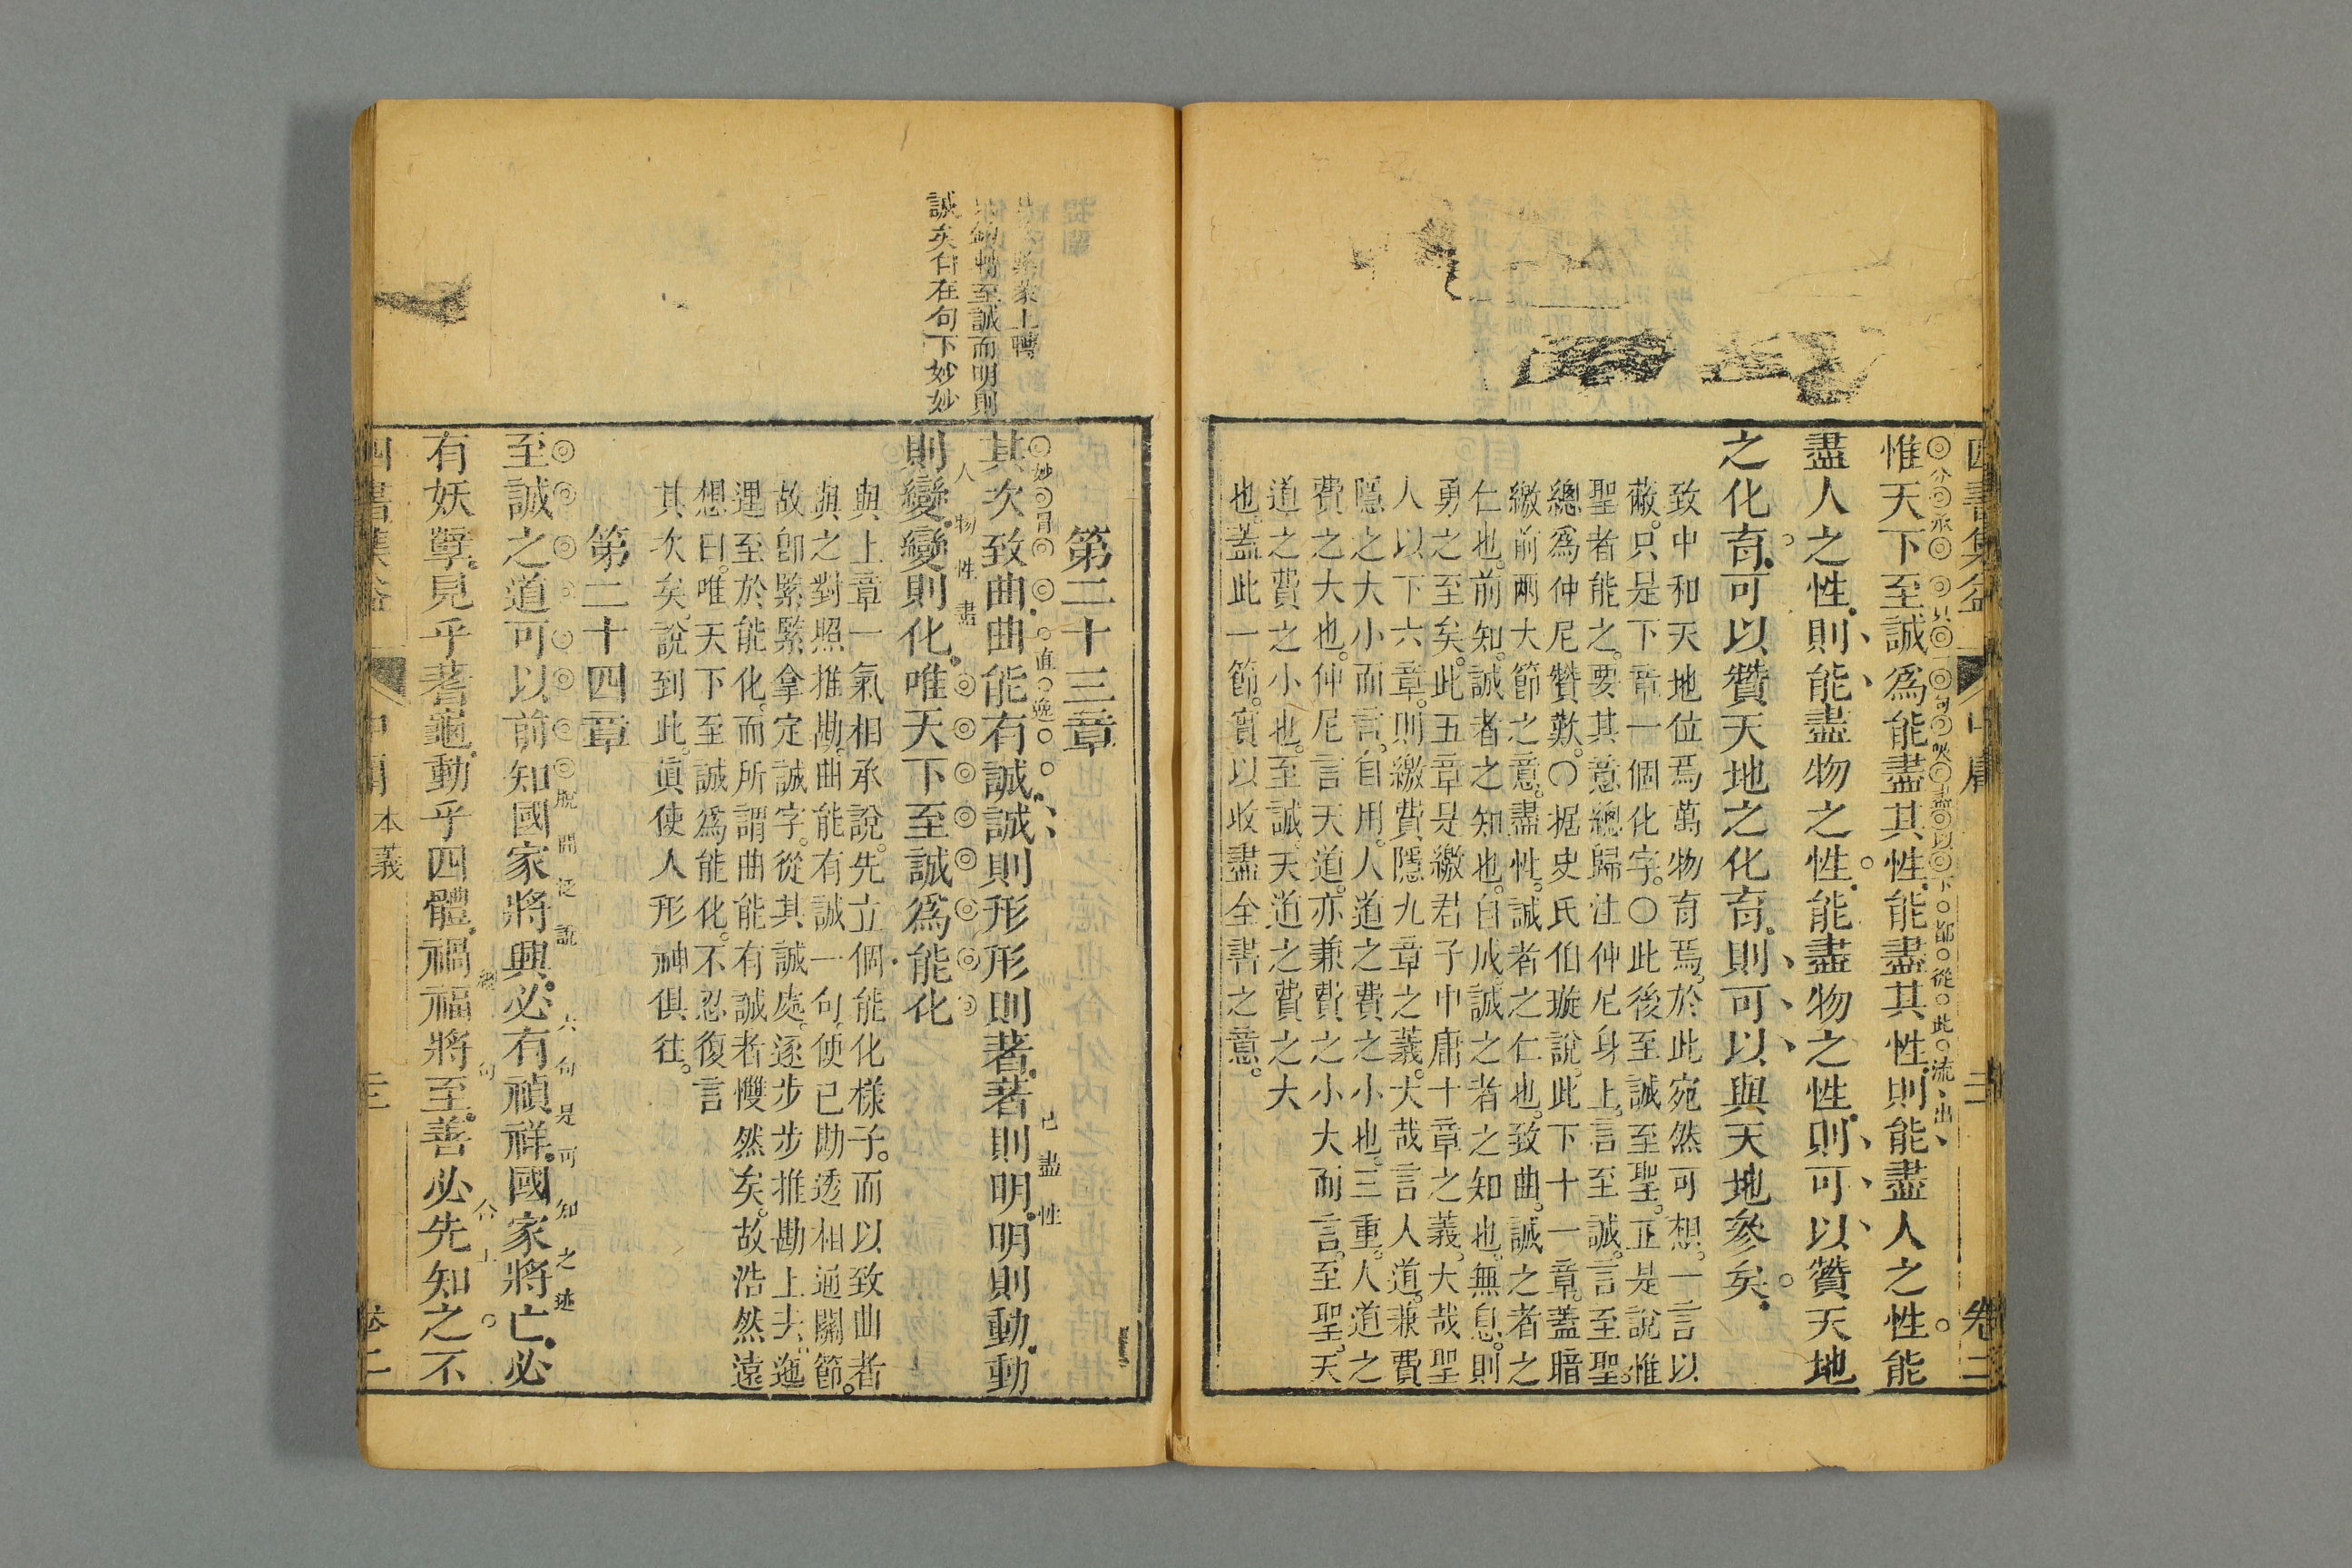 惟天下至誠爲能盡其性能盡其性則能盡人之性能
盡人之性則能盡物之性能盡物之性則可以贊天地
之化育可以贊天地之化育則可以與天地參矣
致中和天地位焉萬物育焉於此宛然可想一言以
蔽只是下章一個化字〇此後至誠至聖正是說惟
聖者能之要其意總歸注仲尼身上言至誠言至聖
總爲仲尼贊歎〇据史氏伯璇說此下十一章蓋暗
繳前兩大節之意盡性誠者之仁也致曲誠之者之
仁也前知誠者之知也自成誠之者之知也無息則
勇之至矣此五章是繳君子中庸十章之義大哉聖
人以下六章則繳費隱九章之義大哉言人道兼費
隱之大小而言自用人道之費之小也三重人道之
費之大也仲尼言天道亦兼費之小大而言至聖天
道之費之小也至誠天道之費之大
也蓋此一節實以收盡全書之意
誠矣句在句下妙妙
第二十三章
其次致曲曲能有誠誠則形形則著著則明明則動動
已盡性
則變變則化唯天下至誠爲能化
人物性盡
與上章一氣相承說先立個能化樣子而以致曲者
與之對照推勘曲能有誠一句便已勘透相通關節
故卽緊緊拿定誠字從其誠處逐步步推勘上去迤
逦至於能化而所謂曲能有誠者戄然矣故浩然遠
想曰唯天下至誠爲能化不忍復言
其次矣說到此眞使人形神俱往
第二十四章
至誠之道可以前知國家將興必有禎祥國家將亡必
脫開泛說六句是可知之迹
有妖孽見乎蓍龜動乎四體禍福將至善必先知之不
中庸 本義